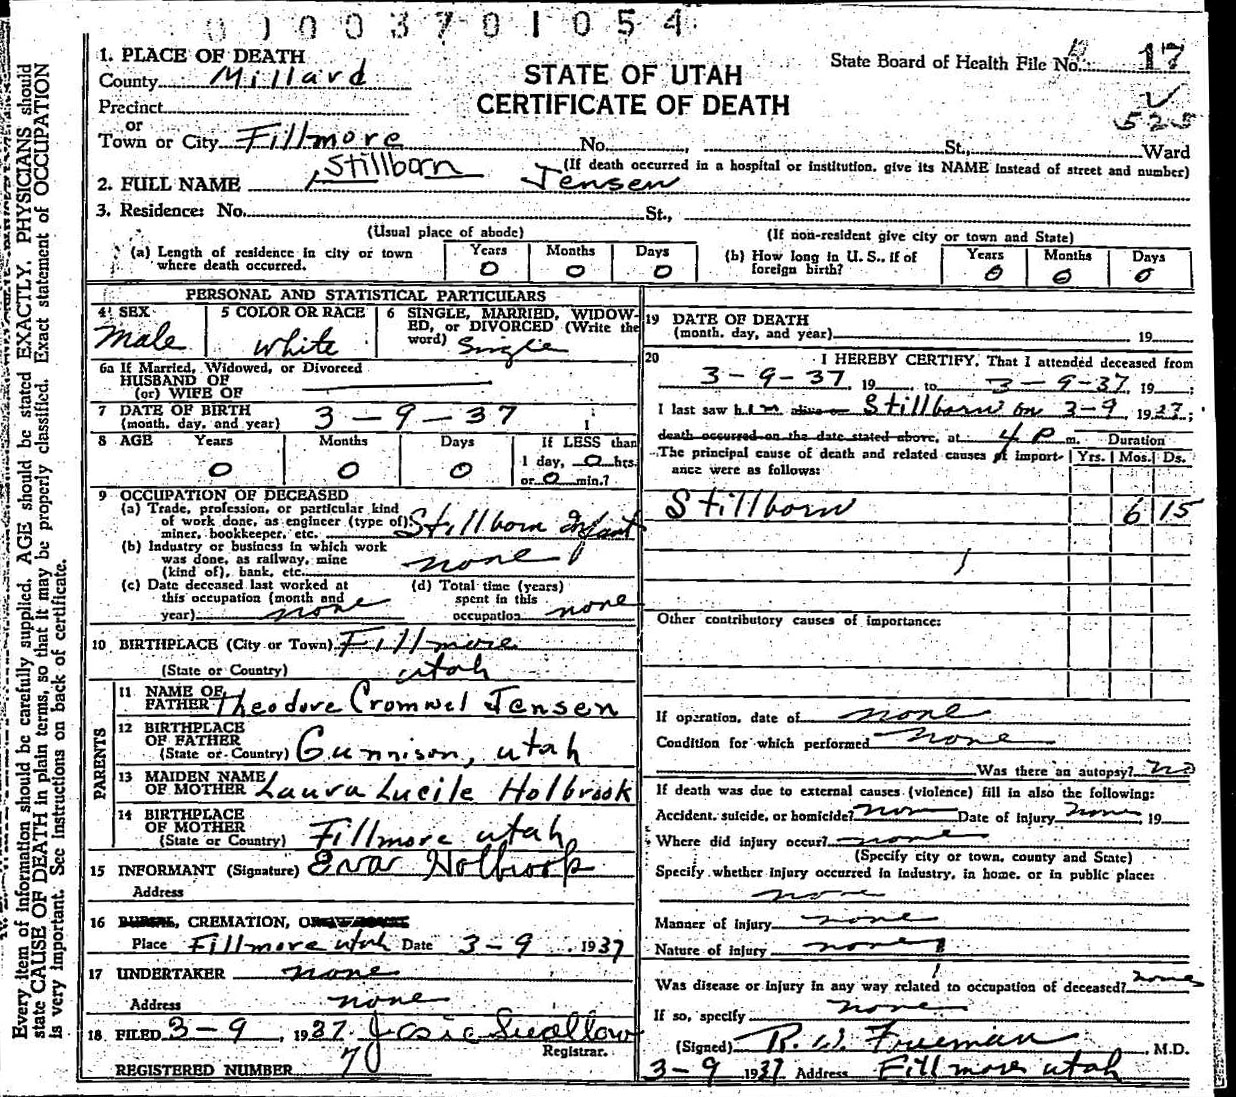 0 1 0 0 3 7 0 1 0 5 4
1. PLACE OF DEATH
County Millard
State Board of Health File No. 17
STATE OF UTAH
CERTIFICATE OF DEATH
Precinct
525
or
Town or City Fillmore No. , St., Ward
(If death occurred in a hospital or institution, give its NAME instead of street and number)
2. FULL NAME Stillborn Jensen
3. Residence: No. St.,
(Usual place of abode) (If non-resident give city or town and State)
(a) Length of residence in city or town where death occurred. Years 0 Months 0 Days 0
(b) How long in U. S., if of foreign birth? Years 0 Months 0 Days 0
PERSONAL AND STATISTICAL PARTICULARS
4 SEX Male
5 COLOR OR RACE White
6 SINGLE, MARRIED, WIDOWED, or DIVORCED (Write the word) Single
6a If Married, Widowed, or Divorced
HUSBAND OF
(or) WIFE OF
7 DATE OF BIRTH
(month, day, and year) 3-9-37
8 AGE Years 0 Months 0 Days 0 If LESS than 1 day, 0 hrs. or 0 min.?
9 OCCUPATION OF DECEASED
(a) Trade, profession, or particular kind
of work done, as engineer (type of)
miner, bookkeeper, etc. Stillborn infant
(b) Industry or business in which work
was done, as railway, mine
(kind of), bank, etc. none
(c) Date deceased last worked at
this occupation (month and
year) none
(d) Total time (years)
spent in this
occupation none
10 BIRTHPLACE (City or Town) Fillmore
(State or Country) utah
PARENTS
11 NAME OF
FATHER Theodore Cromwel Jensen
12 BIRTHPLACE
OF FATHER
(State or Country) Gunnison, utah
13 MAIDEN NAME
OF MOTHER Laura Lucile Holbrook
14 BIRTHPLACE
OF MOTHER
(State or Country) Fillmore utah
15 INFORMANT (Signature) Evar Holbrook
Address
16 BURIAL, CREMATION, OR
Place Fillmore utah Date 3-9 1937
17 UNDERTAKER none
Address none
18 FILED 3-9, 1937. Josie Swallow
Registrar.
REGISTERED NUMBER 7
19 DATE OF DEATH
(month, day, and year) 19
20 I HEREBY CERTIFY, That I attended deceased from
3-9-37, 19, to 3-9-37, 19;
I last saw him alive on Stillborn on 3-9 1937;
death occurred on the date stated above, at 4 P m.
The principal cause of death and related causes of importance were as follows:
Duration
Yrs. Mos. Ds.
Stillborn 6 15
Other contributory causes of importance:
If operation, date of none
Condition for which performed none
Was there an autopsy? no
If death was due to external causes (violence) fill in also the following:
Accident, suicide, or homicide? non Date of injury none, 19
Where did injury occur? none
(Specify city or town, county and State)
Specify whether injury occurred in industry, in home, or in public place:
none
Manner of injury none
Nature of injury none
Was disease or injury in any way related to occupation of deceased? none
If so, specify none
(Signed) R. W. Freeman, M.D.
3-9 1937 Address Fillmore utah
Every item of information should be carefully supplied. AGE should be stated EXACTLY. PHYSICIANS should
state CAUSE OF DEATH in plain terms, so that it may be properly classified. Exact statement of OCCUPATION
is very important. See instructions on back of certificate.